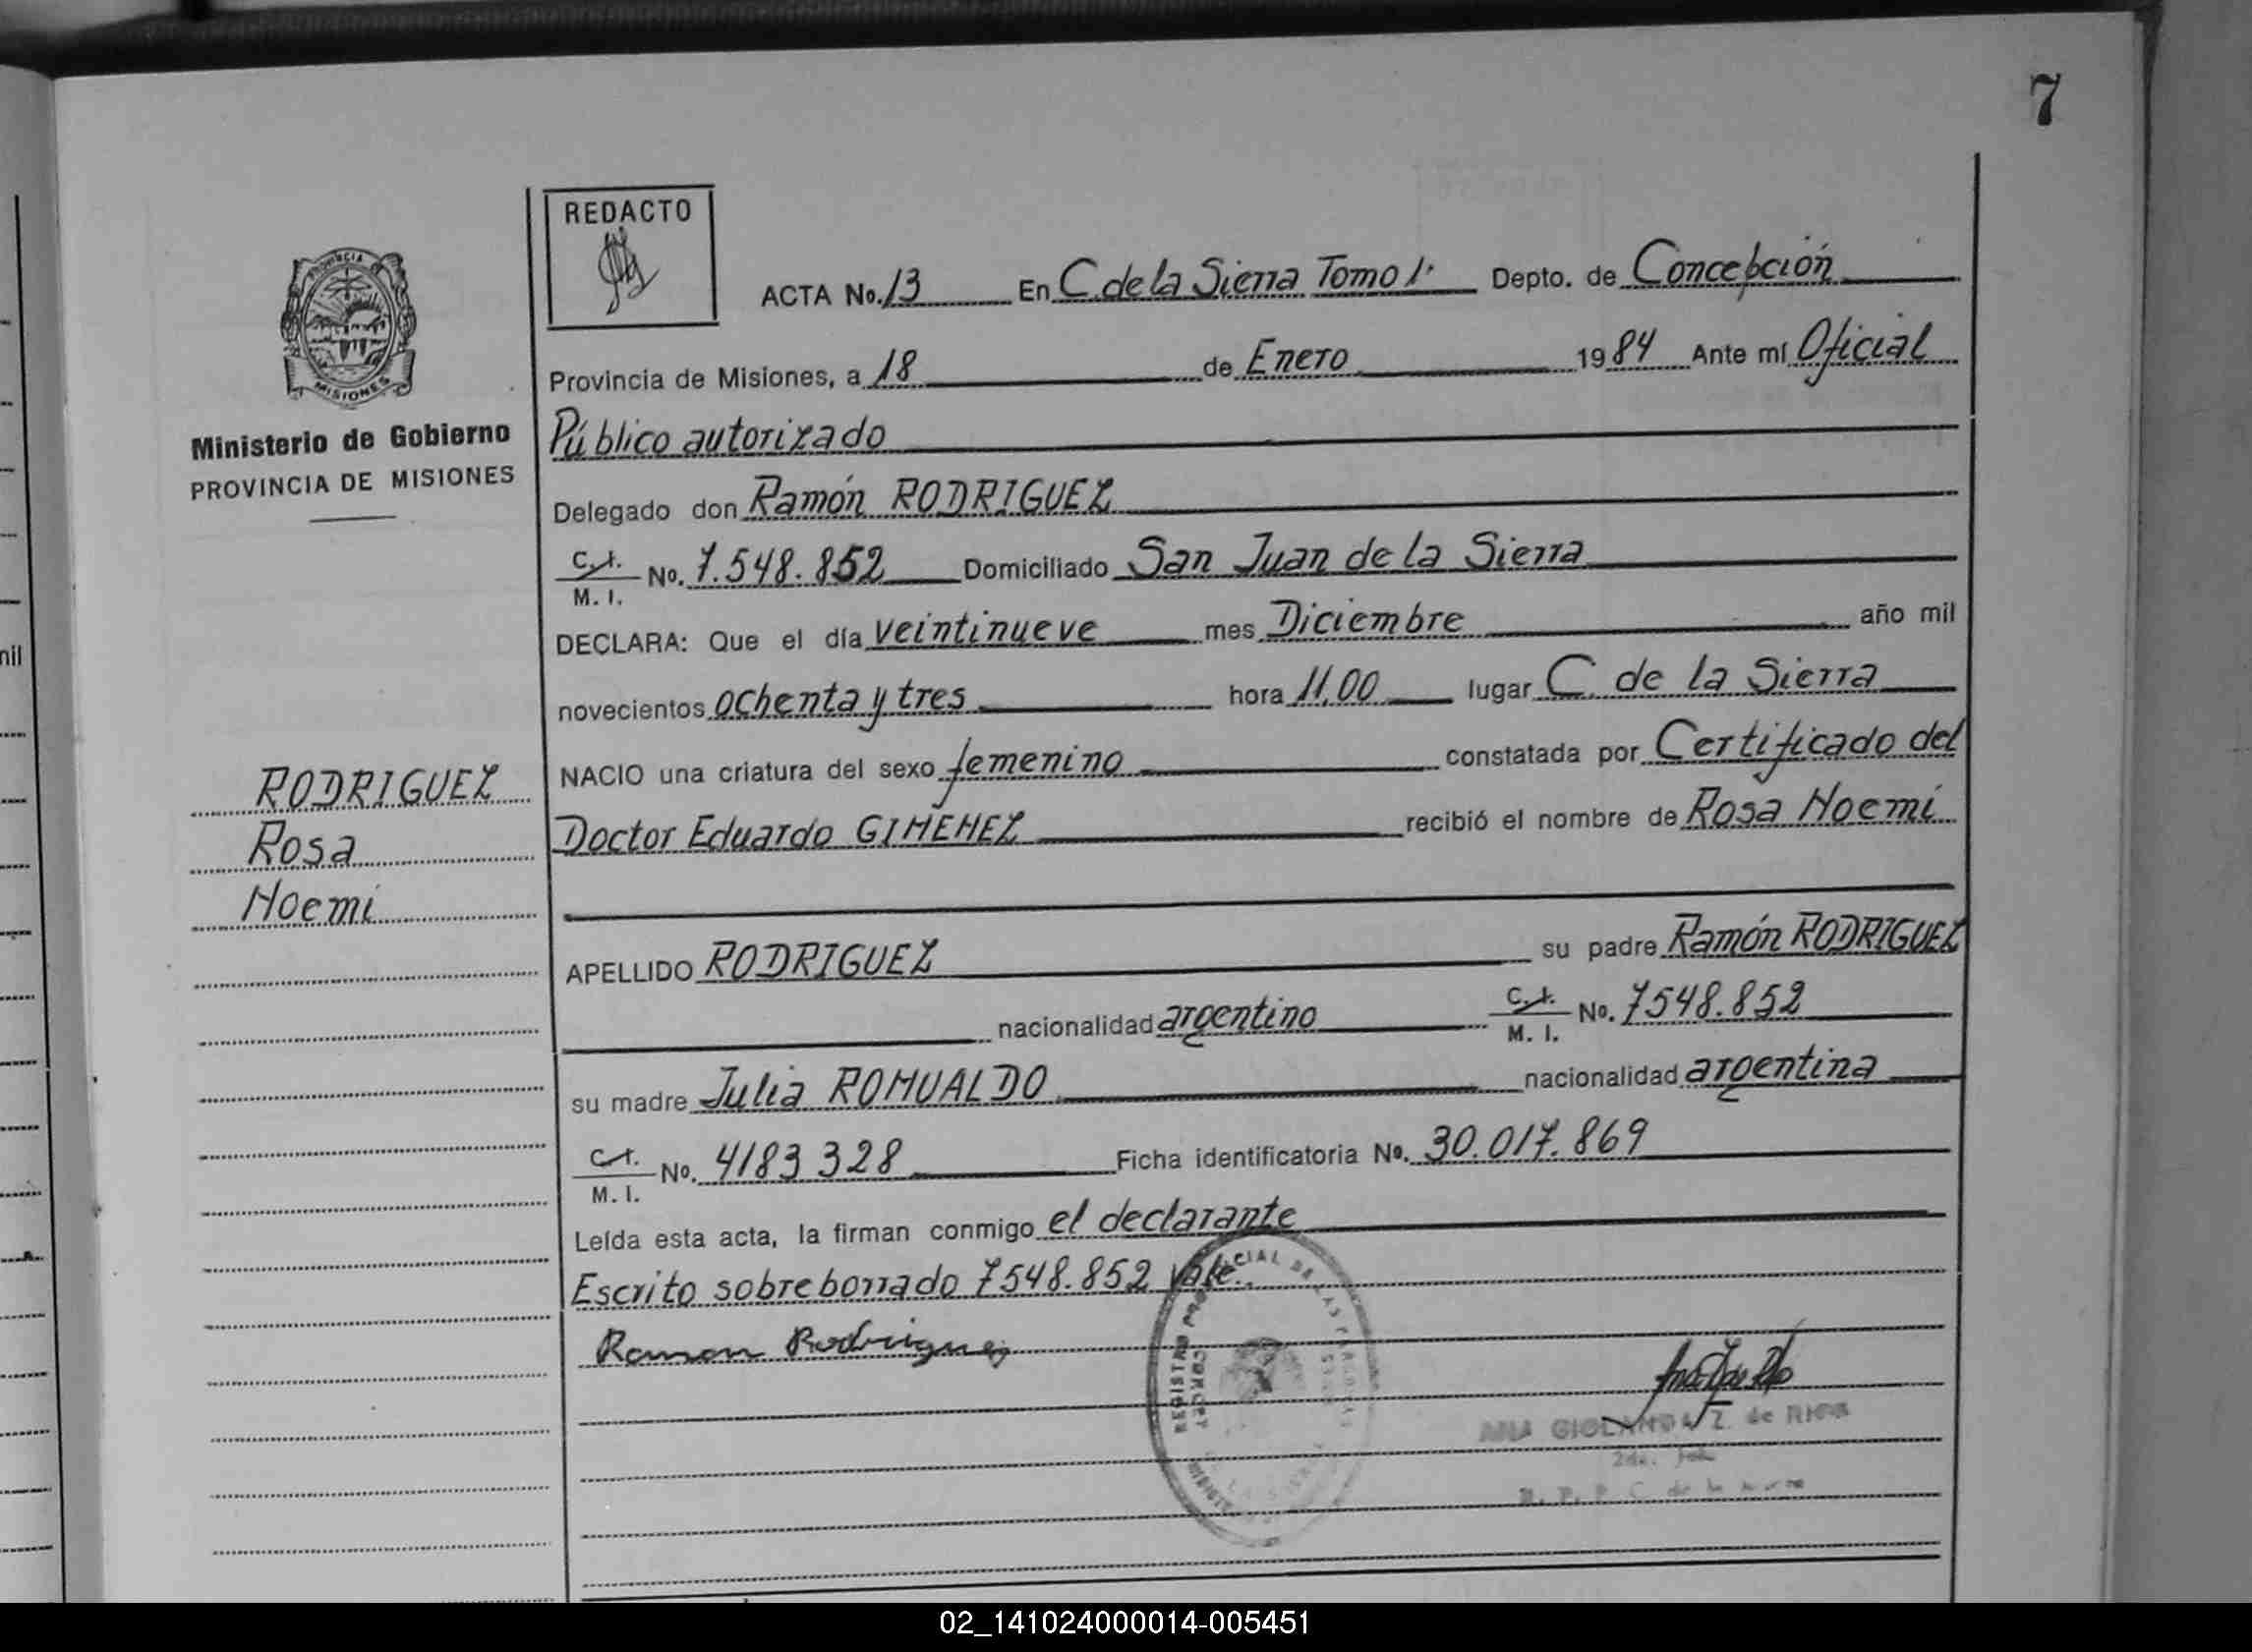 7
REDACTO
ACTA No. 13 En C. de la Sierra Tomo 1º Depto. de Concepción
Provincia de Misiones, a 18 de Enero 1984 Ante mí Oficial
PROVINCIA
MISIONES
Ministerio de Gobierno
PROVINCIA DE MISIONES
Público autorizado
Delegado don Ramón RODRIGUEZ
C. I. M. I. No. 7.548.852 Domiciliado San Juan de la Sierra
DECLARA: Que el día veintinueve mes Diciembre año mil
novecientos ochenta y tres hora 11,00 lugar C. de la Sierra
NACIO una criatura del sexo femenino constatada por Certificado del
Doctor Eduardo GIMENEZ recibió el nombre de Rosa Noemí
RODRIGUEZ
Rosa
Noemí
APELLIDO RODRIGUEZ su padre Ramón RODRIGUEZ
nacionalidad argentino C. I. M. I. No. 7548.852
su madre Julia ROMUALDO nacionalidad argentina
C. I. M. I. No. 4183328 Ficha identificatoria No. 30.017.869
Leída esta acta, la firman conmigo el declarante
Escrito sobreborrado 7548.852 Vale.
Ramon Rodriguez
REGISTRO PROVINCIAL DE LAS PERSONAS
MISIONES
ANA GIOLANDA Z. de RIOS
mil
02_141024000014-005451